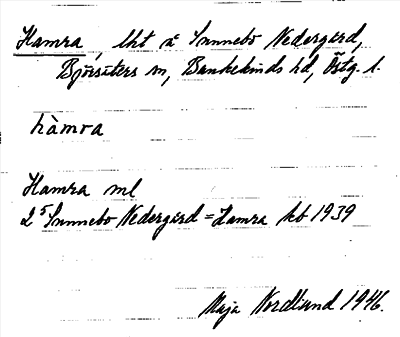 Hamra, lht å Sunnebo Nedergård,
Björsäters sn, Bankekinds hd, Östg. l.
hàmra
Hamra ml
2⁵ Sunnebo Nedergård = Hamra kb 1939
Maja Nordlund 1946.